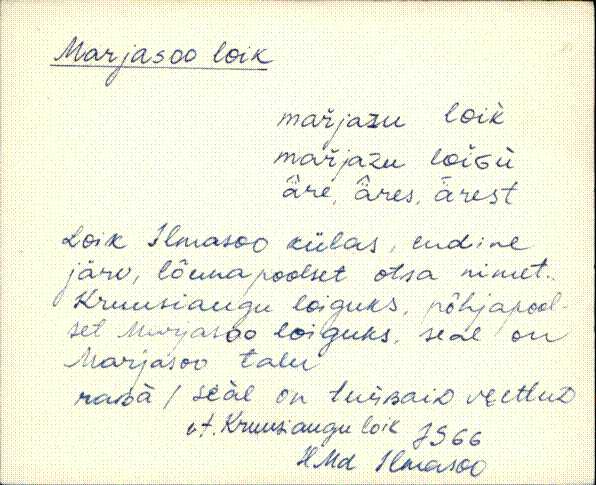 Marjasoo loik
maŕjazu loik
maŕjazu loiGù
äre, äres, ärest
Loik Ilmasoo külas, endine
järv, lõunapoolset otsa nimet.
Kruusiaugu loiguks, põhjapool-
set Marjasoo loiguks, seal on
Marjasoo talu
seäl on veetluD
vt. Kruusiaugu loik JS66
HMd Ilmasoo